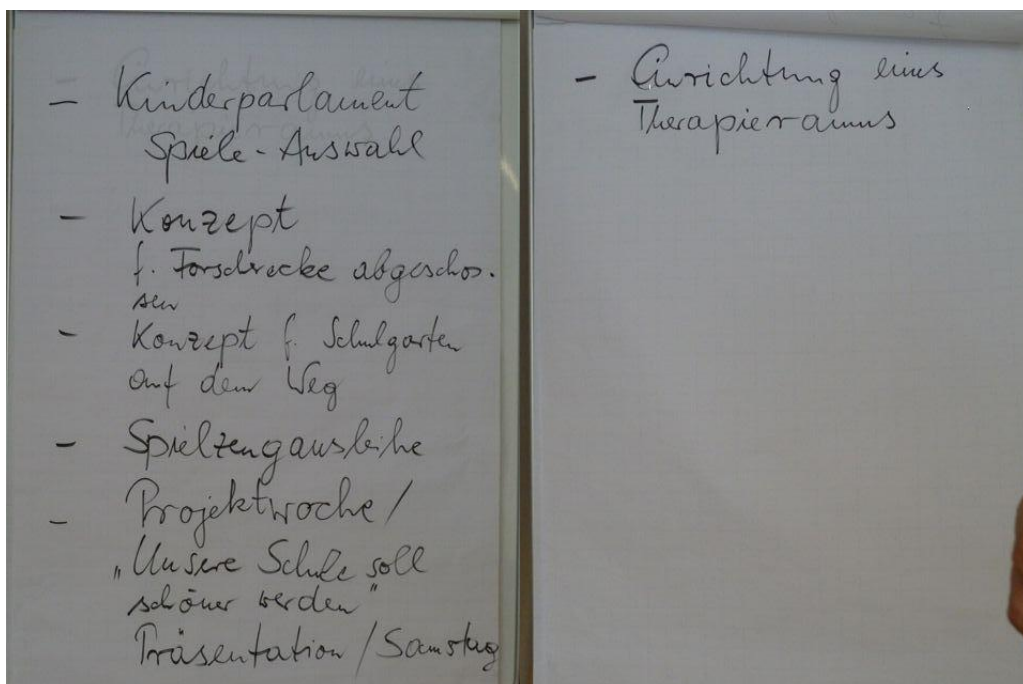 - Kinderparlament
Spiele-Auswahl
- Konzept
f. Forscherecke abgeschos-
sen
- Konzept f. Schulgarten
auf dem Weg
- Spielzeugausleihe
- Projektwoche /
„Unsere Schule soll
schöner werden"
Präsentation / Samstag
- Einrichtung eines
Therapieraums